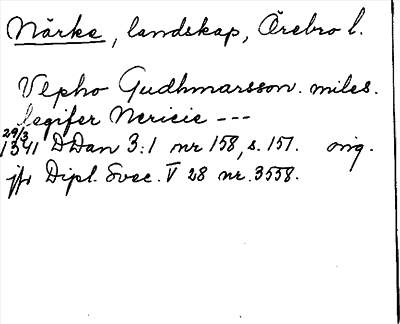 Närke, landskap, Örebro l.
Vlpho Gudhmarsson. miles.
legifer Nericie ---
29/3
1341 DDan 3:1 nr 158, s. 151. orig.
jfr Dipl. Svec. V 28 nr. 3558.